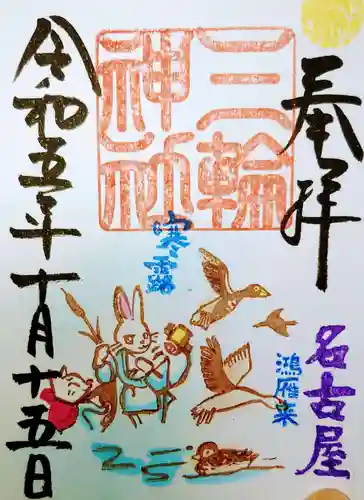 奉拝
三輪
神社
名古屋
寒露
鴻雁来
令和五年十月十五日